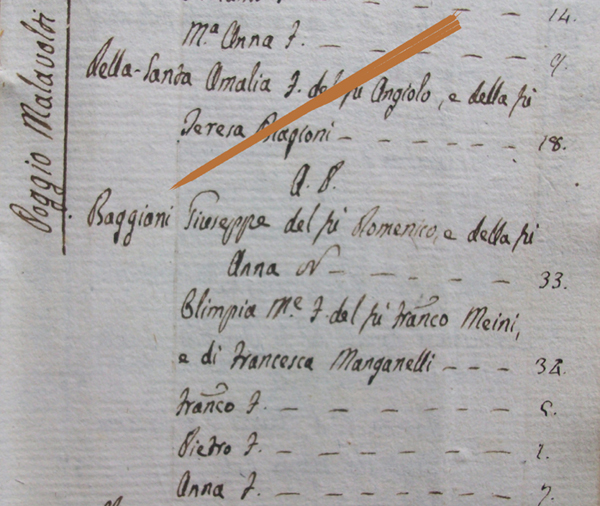 Poggio Malavolti
14.
Mª Anna F. — — — — 9.
della-Santa Amalia F. del fù Angiolo, e della fù
Teresa Biagioni — — — — 18.
A. P.
Baggiani Giuseppe del fù Domenico, e della fù
Anna N — — — — 33.
Olimpia Mᵉ F. del fù Franco Meini,
e di Francesca Manganelli - - - 34.
Franco F. — — — — —
Pietro F. — — — — —
Anna F. — — — — — 7.